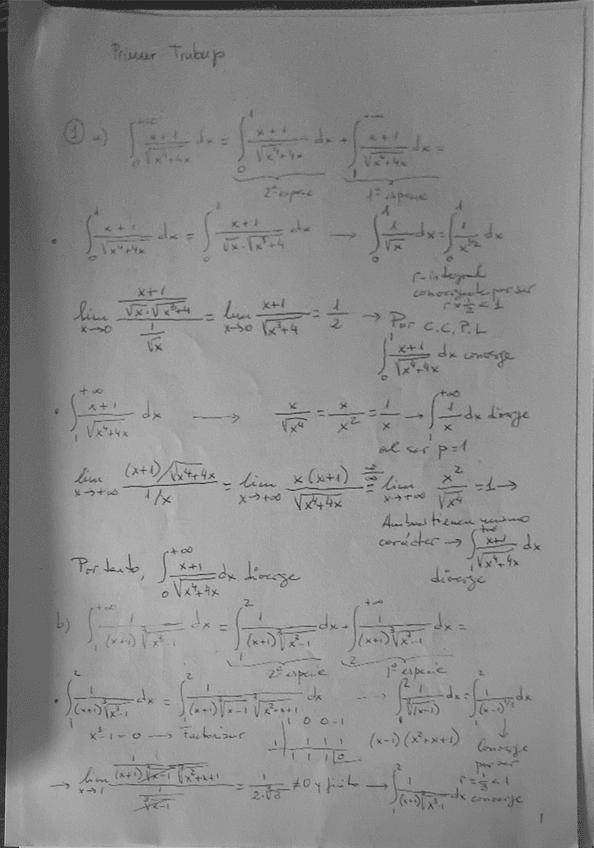 Primer Trabajo
① a) ∫₀^{+∞} (x+1)/√(x⁴+4x) dx = ∫₀¹ (x+1)/√(x⁴+4x) dx + ∫₁^{+∞} (x+1)/√(x⁴+4x) dx =
2ª especie 1ª especie
• ∫₀¹ (x+1)/√(x⁴+4x) dx = ∫₀¹ (x+1)/(√x·√(x³+4)) dx → ∫₀¹ 1/√x dx = ∫₀¹ 1/x^{1/2} dx
r-integral
convergente por ser
r = 1/2 < 1
lim_{x→0} ((x+1)/(√x·√(x³+4)))/(1/√x) = lim_{x→0} (x+1)/√(x³+4) = 1/2 → Por C.C.P.L
∫₀¹ (x+1)/√(x⁴+4x) dx converge
• ∫₁^{+∞} (x+1)/√(x⁴+4x) dx → x/√x⁴ = x/x² = 1/x → ∫₁^{+∞} 1/x dx diverge
al ser p=1
lim_{x→+∞} ((x+1)/√(x⁴+4x))/(1/x) = lim_{x→+∞} x(x+1)/√(x⁴+4x) =^{∞/∞} lim_{x→+∞} x²/√x⁴ = 1 →
Ambas tienen mismo
carácter → ∫₁^{+∞} (x+1)/√(x⁴+4x) dx
diverge
Por tanto, ∫₀^{+∞} (x+1)/√(x⁴+4x) dx diverge
b) ∫₁^{+∞} 1/((x+1)∛(x³-1)) dx = ∫₁² 1/((x+1)∛(x³-1)) dx + ∫₂^{+∞} 1/((x+1)∛(x³-1)) dx =
2ª especie 1ª especie
• ∫₁² 1/((x+1)∛(x³-1)) dx = ∫₁² 1/((x+1)∛(x-1)∛(x²+x+1)) dx → ∫₁² 1/∛(x-1) dx = ∫₁² 1/(x-1)^{1/3} dx
x³-1=0 → Factorizar
1 0 0 -1
1 1 1 1
1 1 1 0
(x-1)(x²+x+1)
Converge
por ser
r = 1/3 < 1
→ lim_{x→1} (1/((x+1)∛(x-1)∛(x²+x+1)))/(1/∛(x-1)) = 1/(2·∛3) ≠ 0 y finito → ∫₁² 1/((x+1)∛(x³-1)) dx converge
1